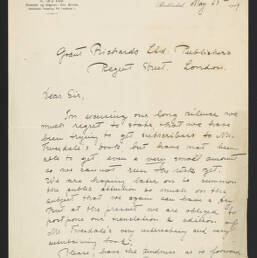 May 29
Grant Richards Ltd. Publishers
Regent Street, London.
Dear Sir,
In excusing our long silence we
much regret to state that we have
been trying to get subscribers to Mr.
book, but have not been
able to get even a very small amount
so we cannot even the risk yet.
We are hoping later on to summon
the public attention so much on the
subject that we again can have a try
But at the present we are obliged to
postpone our translation & edition of
Mr. very interesting and very
entertaining book.
Please, have the kindness as to forward